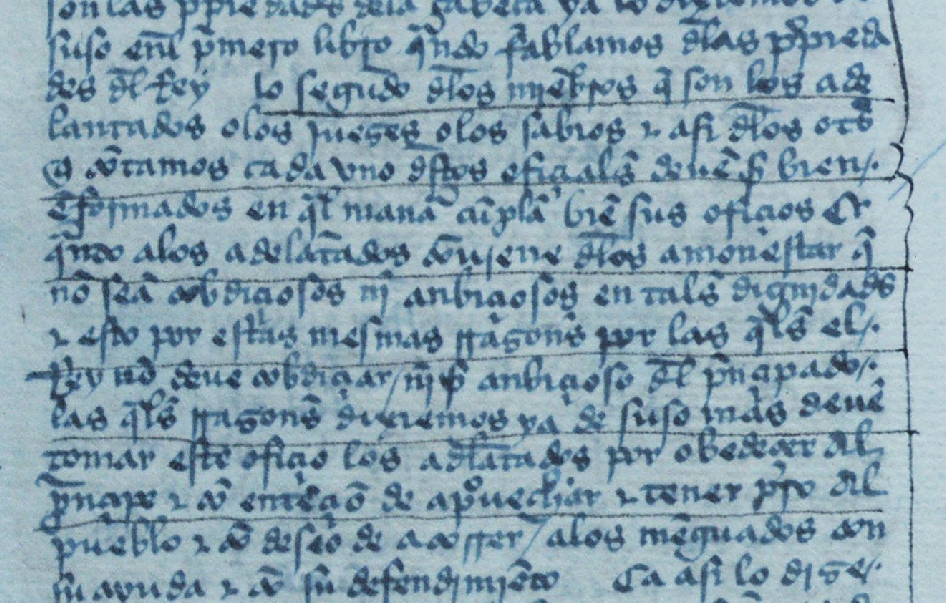 son las ppiedads dela cabeça ya lo dixiemos de
suso enl pmero libro qndo fablamos dlas ppieda
des dl Rey lo segudo dlos miēbros q̄ son los ade
lantados o los jueçes o los sabios ⁊ asi dlos otōs
cōtamos cada vno dstos ofiçials̄ deuē sr bien
Eformados en ql manā cūplā biē sus ofiçios Et
qndo alos adelātados cōujene dlos amonestar q̄
nō seā cobdiçiosos nī anbiçiosos en tals̄ dignidads
⁊ esto por estas mesmas rrazons̄ por las qls̄ el
Rey nō deue cobdiçiar nī sr anbiçioso dl pnçipado
las qls̄ rrazons̄ dixiemos ya de suso mas deuē
tomar este ofiçio los adlātados por obedeçer al
pnçipe ⁊ cō entēçiō de apouechar ⁊ tener pro al
pueblo ⁊ cō deseo de acorrer alos mēguados con
su ayuda ⁊ cō su defendimiēto Ca asi lo dize